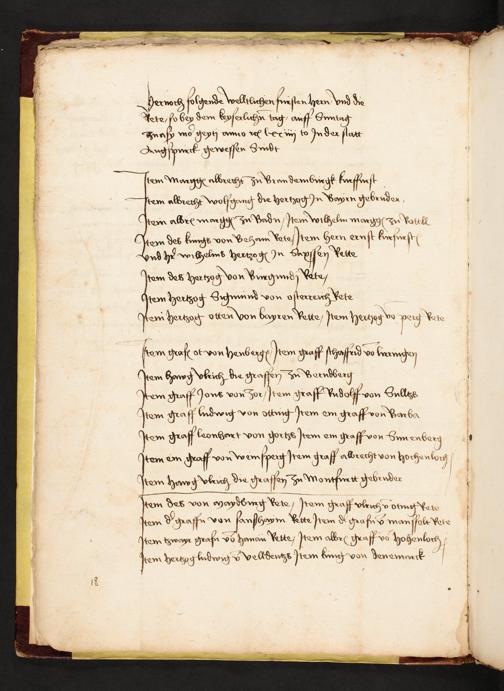 Hernoch folgende welltlichen fursten hern vnd die
Rete so bey dem keyserlichn tag auff Sunntag
anno to In der statt
Augspurck gewessen Sindt
Item Marggr albrecht zu Brandemburgk kurfurst
Item albrecht wolfgang die hertzog In Bayrn gebruder
Item albr marggr zu Badn / Item wilhelm marggr zu Rottl
Item des kungs von Behaim Rete / Item hern ernst kurfurst
vnd hr wilhelms hertzog In Saxssen Rette
Item des Hertzog von Burgundj Rete /
Item Hertzog Sigmund von osterreich Rete
Item hertzog otten von beyren Rette / Item Hertzog vo perg Rete
Item graf ot von Henberg / Item graff vo
Item Hawg vlrich die graffen zu Werndberg
Item graff Jons von Zor / Item graff Rudolff von Sulltz
Item graff ludwig von otting Item ein graff von Barba
Item graff leonhart von gortz Item ein graff von
Item ein graff von weinsperg Item graff albrecht von Hochenloch /
Item Hawg vlrich die graffen zu Montfurtt gebruder
Item des von Maydburg Rete / Item graff vlrich v otting Rete
Item d graffn von Rette Item d grafn v manssfelt Rete
Item zwayr grafn vo hanaw Rette / Item albr graff vo Hohenloch /
Item Hertzog ludwig v velldentz Item kung von denemarck
18